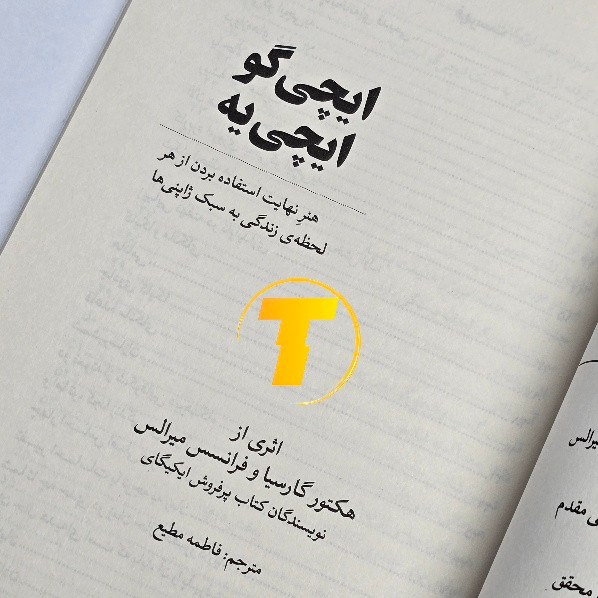 ایچی‌گو
ایچی‌یه
هنرِ نهایت استفاده بردن از هر
لحظه‌ی زندگی به سبک ژاپنی‌ها
T
اثری از
هکتور گارسیا و فرانسس میرالس
نویسندگان کتاب پرفروش ایکیگای
مترجم: فاطمه مطیع
مقدم
محقق